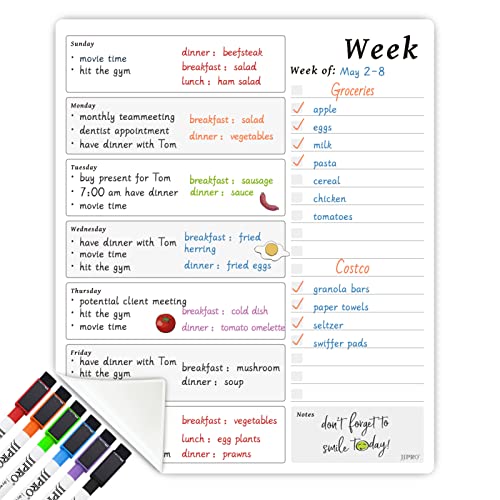 Week
Week of: May 2-8
Sunday
• movie time
• hit the gym
dinner : beefsteak
breakfast : salad
lunch : ham salad
Monday
• monthly teammeeting
• dentist appointment
• have dinner with Tom
breakfast : salad
dinner : vegetables
Tuesday
• buy present for Tom
• 7:00 am have dinner
• movie time
breakfast : sausage
dinner : sauce
Wednesday
• have dinner with Tom
• movie time
• hit the gym
breakfast : fried
herring
dinner : fried eggs
Thursday
• potential client meeting
• hit the gym
• movie time
breakfast : cold dish
dinner : tomato omelette
Friday
• have dinner with Tom
• hit the gym
breakfast : mushroom
dinner : soup
breakfast : vegetables
lunch : egg plants
dinner : prawns
Groceries
apple
eggs
milk
pasta
cereal
chicken
tomatoes
Costco
granola bars
paper towels
seltzer
swiffer pads
Notes
don't forget to
smile today!
JJPRO
JJPRO
JJPRO
JJPRO
JJPRO
JJPRO
JJPRO